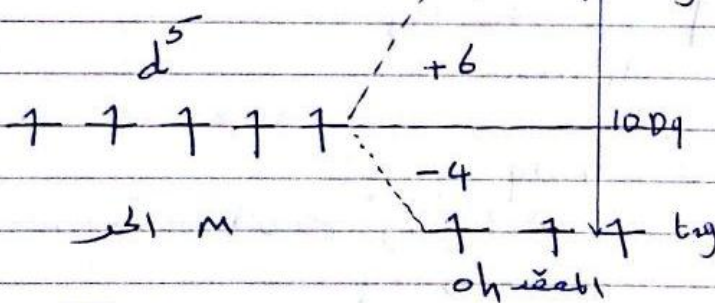 d⁵
+6
↑ ↑ ↑ ↑ ↑
10Dq
-4
M الحر
↑ ↑ ↑ t₂g
المعقد oh